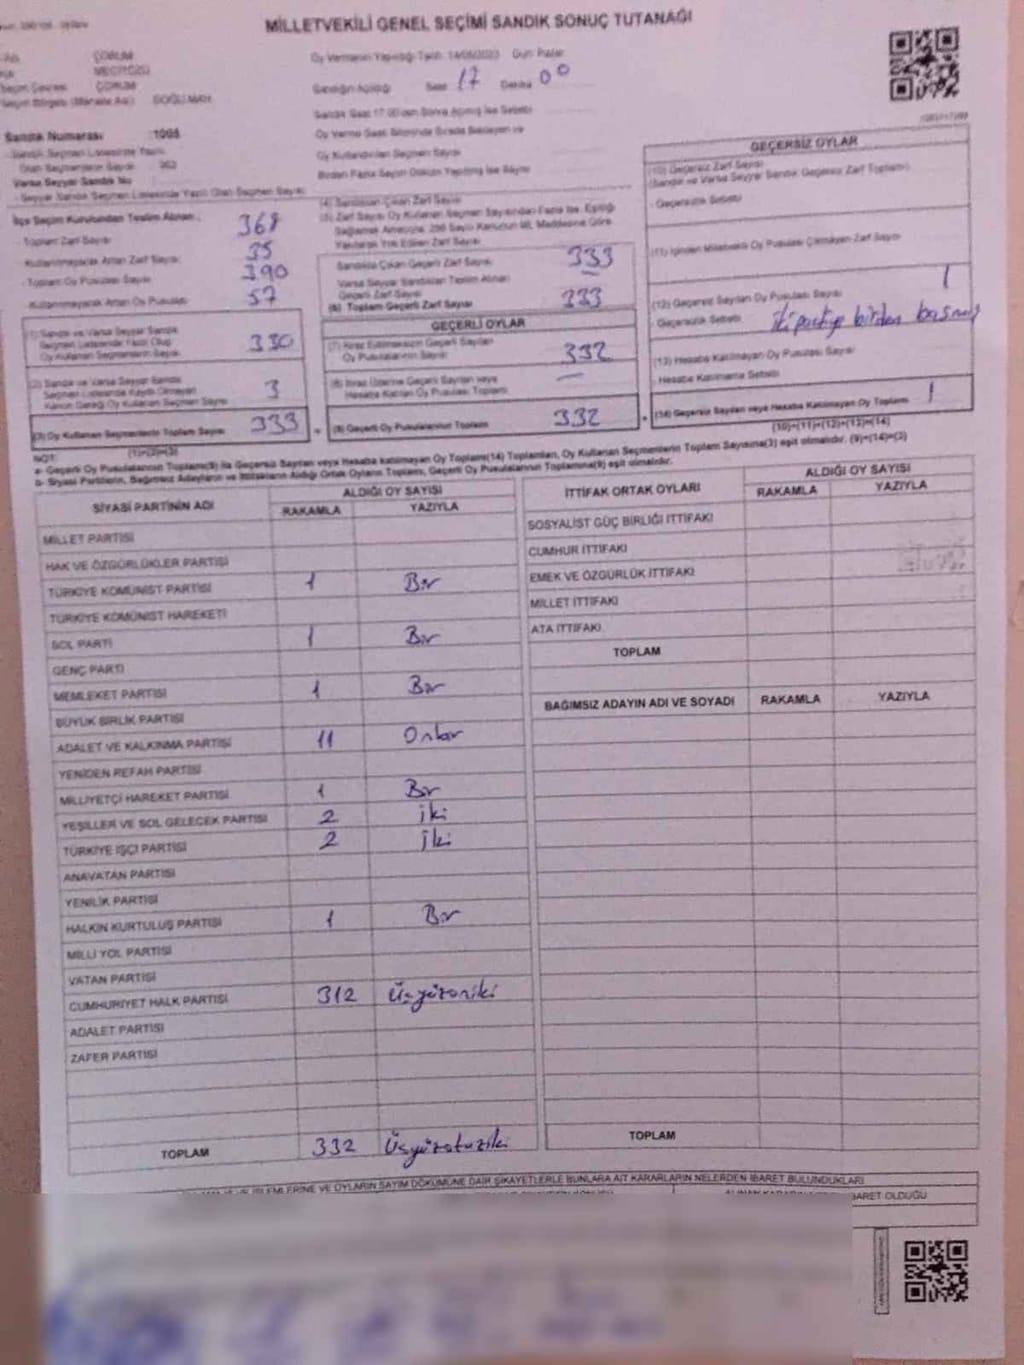 MİLLETVEKİLİ GENEL SEÇİMİ SANDIK SONUÇ TUTANAĞI
ÇORUM
MECİTÖZÜ
Seçim Çevresi ÇORUM
Oy Vermenin Yapıldığı Tarih 14/05/2023 Gün Pazar
Sandığın Açıldığı Saat 17 Dakika 00
Sandık Numarası 1095
Oy Verme Saati Bitiminde Sırada Bekleyen ve
Oy Kullandırılan Seçmen Sayısı
Varsa Seyyar Sandık No
İlçe Seçim Kurulundan Teslim Alınan
Toplam Zarf Sayısı 368
Kullanılmayarak Artan Zarf Sayısı 35
Toplam Oy Pusulası Sayısı 390
Kullanılmayarak Artan Oy Pusulası 57
(1) Sandık ve Varsa Seyyar Sandık
Seçmen Listesinde Yazılı Olup
Oy Kullanan Seçmenlerin Sayısı 330
(2) Sandık ve Varsa Seyyar Sandık
Seçmen Listesinde Kaydı Olmayan
Kanun Gereği Oy Kullanan Seçmen Sayısı 3
(3) Oy Kullanan Seçmenlerin Toplam Sayısı 333
(1)+(2)=(3)
(4) Sandıktan Çıkan Zarf Sayısı
Sandıkta Çıkan Geçerli Zarf Sayısı 333
Varsa Seyyar Sandıktan Teslim Alınan
Geçerli Zarf Sayısı
(6) Toplam Geçerli Zarf Sayısı 333
GEÇERLİ OYLAR
(7) İtiraz Edilmeksizin Geçerli Sayılan
Oy Pusulalarının Sayısı 332
(8) İtiraz Üzerine Geçerli Sayılan veya
Hesaba Katılan Oy Pusulası Toplamı —
(9) Geçerli Oy Pusulalarının Toplamı 332
GEÇERSİZ OYLAR
(10) Geçersiz Zarf Sayısı
(Sandık ve Varsa Seyyar Sandık Geçersiz Zarf Toplamı)
- Geçersizlik Sebebi
(11) İçinden Milletvekili Oy Pusulası Çıkmayan Zarf Sayısı
(12) Geçersiz Sayılan Oy Pusulası Sayısı 1
- Geçersizlik Sebebi iki partiye birden basmış
(13) Hesaba Katılmayan Oy Pusulası Sayısı
- Hesaba Katılmama Sebebi
(14) Geçersiz Sayılan veya Hesaba Katılmayan Oy Toplamı 1
(10)+(11)+(12)+(13)=(14)
NOT:
a- Geçerli Oy Pusulalarının Toplamı(9) ile Geçersiz Sayılan veya Hesaba katılmayan Oy Toplamı(14) Toplamları, Oy Kullanan Seçmenlerin Toplam Sayısına(3) eşit olmalıdır. (9)+(14)=(3)
b- Siyasi Partilerin, Bağımsız Adayların ve İttifakların Aldığı Ortak Oyların Toplamı, Geçerli Oy Pusulalarının Toplamına(9) eşit olmalıdır.
SİYASİ PARTİNİN ADI ALDIĞI OY SAYISI
RAKAMLA YAZIYLA
MİLLET PARTİSİ
HAK VE ÖZGÜRLÜKLER PARTİSİ
TÜRKİYE KOMÜNİST PARTİSİ 1 Bir
TÜRKİYE KOMÜNİST HAREKETİ
SOL PARTİ 1 Bir
GENÇ PARTİ
MEMLEKET PARTİSİ 1 Bir
BÜYÜK BİRLİK PARTİSİ
ADALET VE KALKINMA PARTİSİ 11 Onbir
YENİDEN REFAH PARTİSİ
MİLLİYETÇİ HAREKET PARTİSİ 1 Bir
YEŞİLLER VE SOL GELECEK PARTİSİ 2 İki
TÜRKİYE İŞÇİ PARTİSİ 2 İki
ANAVATAN PARTİSİ
YENİLİK PARTİSİ
HALKIN KURTULUŞ PARTİSİ 1 Bir
MİLLİ YOL PARTİSİ
VATAN PARTİSİ
CUMHURİYET HALK PARTİSİ 312 Üçyüzoniki
ADALET PARTİSİ
ZAFER PARTİSİ
TOPLAM 332 Üçyüzotuziki
İTTİFAK ORTAK OYLARI ALDIĞI OY SAYISI
RAKAMLA YAZIYLA
SOSYALİST GÜÇ BİRLİĞİ İTTİFAKI
CUMHUR İTTİFAKI
EMEK VE ÖZGÜRLÜK İTTİFAKI
MİLLET İTTİFAKI
ATA İTTİFAKI
TOPLAM
BAĞIMSIZ ADAYIN ADI VE SOYADI RAKAMLA YAZIYLA
TOPLAM
İŞLEMLERİNE VE OYLARIN SAYIM DÖKÜMÜNE DAİR ŞİKAYETLERLE BUNLARA AİT KARARLARIN NELERDEN İBARET BULUNDUKLARI
İBARET OLDUĞU